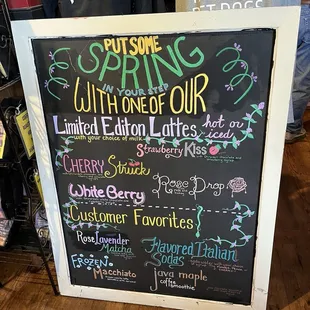 PUT SOME
SPRING
IN YOUR STEP
WITH ONE OF OUR
Limited Editon Lattes hot or iced
with your choice of milk
Strawberry Kiss
CHERRY Struck
Rose Drop
White Berry
Customer Favorites!
Rose Lavender Matcha
Flavored Italian Sodas
FROZEN Macchiato
java maple
coffee smoothie